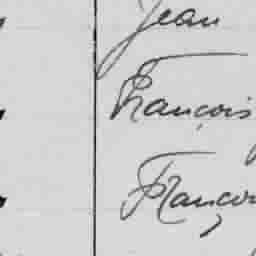 Jean
François
Franço